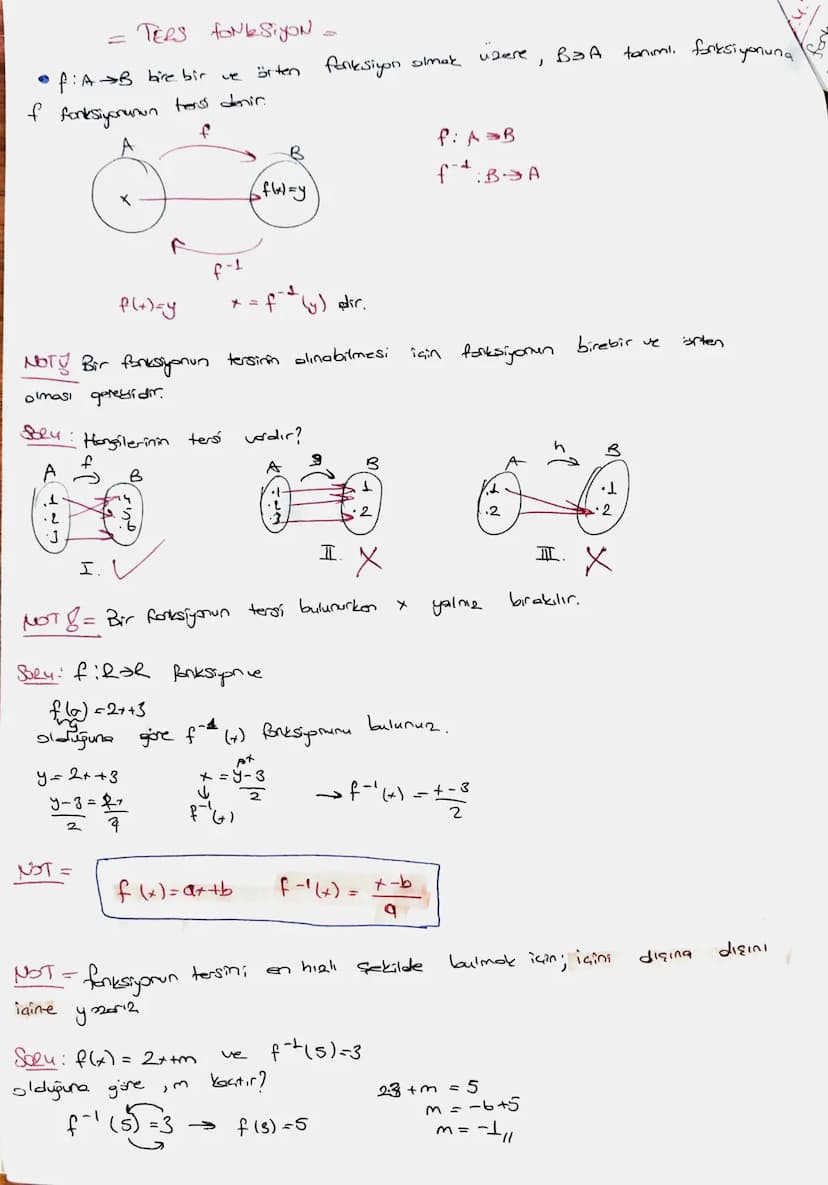 = TERS FONKSİYON =
• f: A→B bire bir ve örten fonksiyon olmak üzere, B→A tanımlı fonksiyonuna
f fonksiyonunun tersi denir.
f
A
B
x
f(x)=y
f⁻¹
f: A→B
f⁻¹: B→A
f(x)=y x = f⁻¹(y) dir.
NOT: Bir fonksiyonun tersinin alınabilmesi için fonksiyonun birebir ve örten
olması gereklidir.
Soru: Hangilerinin tersi vardır?
A f B
.1 .2 .3
4 5 6
I. ✓
A g B
.1 .2 .3
1 .2
II. X
A h B
.1 .2
.1 .2
III. X
NOT: = Bir fonksiyonun tersi bulunurken x yalnız bırakılır.
Soru: f: R→R fonksiyonu ve
f(x) = 2x+3
y
olduğuna göre f⁻¹(x) fonksiyonunu bulunuz.
y = 2x+3
x = (y-3)/2 → f⁻¹(x) = (x-3)/2
f⁻¹(x)
NOT =
f(x) = ax+b f⁻¹(x) = (x-b)/a
NOT = fonksiyonun tersini en hızlı şekilde bulmak için; içini dışına dışını
içine yazarız
Soru: f(x) = 2x+m ve f⁻¹(5)=3
olduğuna göre, m kaçtır?
f⁻¹(5)=3 → f(3)=5
2.3+m = 5
m = -6+5
m = -1//